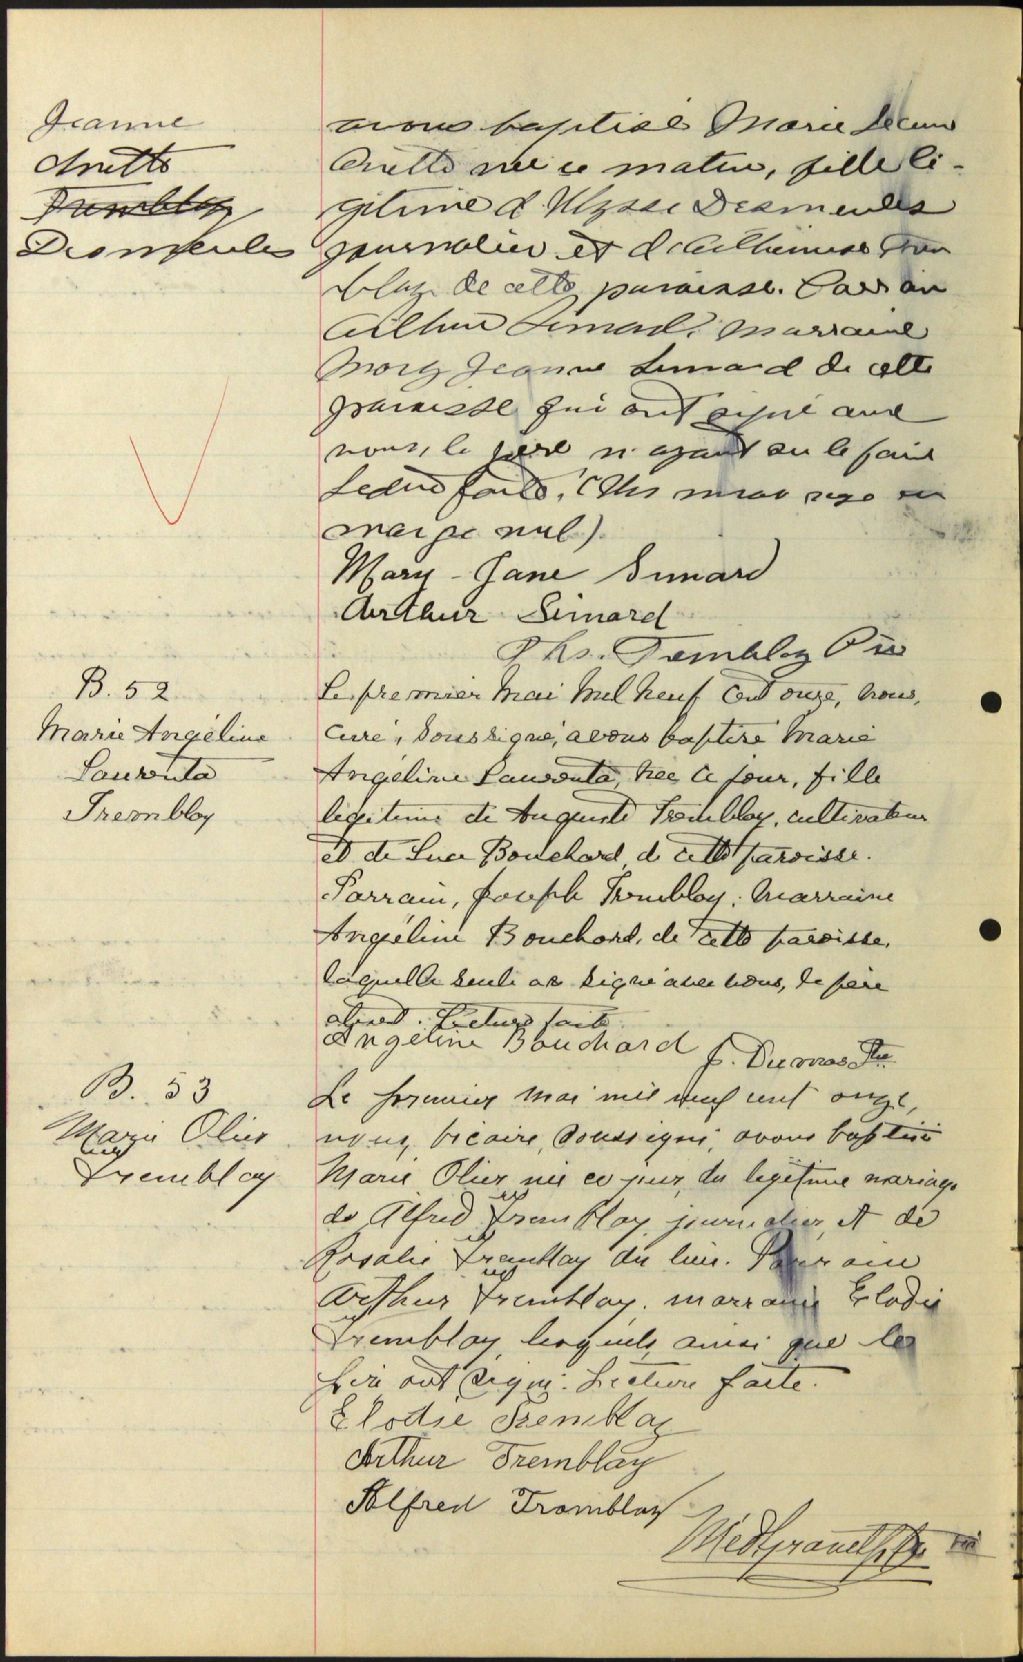 Jeanne
Anette
Tremblay
Desmeules
avons baptisé Marie Jeanne
Anette née ce matin, fille lé-
gitime d'Ulysse Desmeules
journalier et d'Alphonsine Trem
blay de cette paroisse. Parrain
Arthur Simard, marraine
Mary Jeanne Simard de cette
paroisse qui ont signé avec
nous, le père n'ayant su le faire
Lecture faite. (Un mot rayé en
marge nul)
Mary-Jane Simard
Arthur Simard
Ths. Tremblay Ptre
B. 52
Marie Angéline
Laurenta
Tremblay
Le premier Mai Mil Neuf Cent onze, nous,
curé, soussigné, avons baptisé Marie
Angéline Laurenta, née ce jour, fille
légitime de Auguste Tremblay, cultivateur
et de Luce Bouchard, de cette paroisse.
Parrain, Joseph Tremblay; Marraine
Angéline Bouchard, de cette paroisse,
laquelle seule a signé avec nous, le père
absent. Lecture faite
Angéline Bouchard
J. Dumas Ptre
B. 53
Marie Olier
Tremblay
Le premier mai mil neuf cent onze,
nous, vicaire, soussigné, avons baptisé
Marie Olier née ce jour, du légitime mariage
de Alfred Tremblay, journalier, et de
Rosalie Tremblay du lieu. Parrain
Arthur Tremblay. marraine Elodie
Tremblay, lesquels, ainsi que le
père ont signé. Lecture faite.
Elodie Tremblay
Arthur Tremblay
Alfred Tremblay